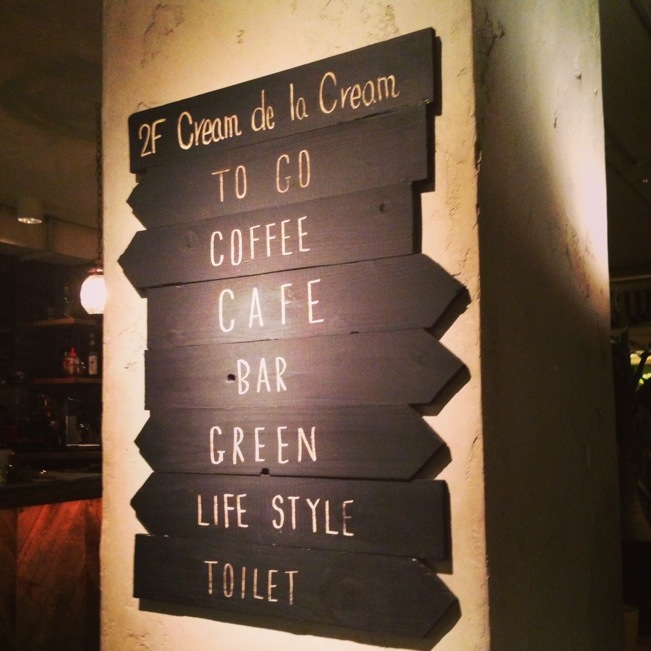 2F Cream de la Cream
TO GO
COFFEE
CAFE
BAR
GREEN
LIFE STYLE
TOILET